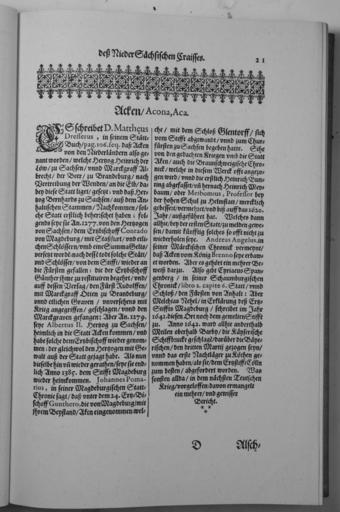 deß NiederSächsischen Craisses.
21
Acken/Acona, Aca.
ES schreibet D. Mattheus
Dresserus, in seinem Stätt-
Buch/pag. 106. seq. daß Acken
von den Niederländern also ge-
nant worden/ welche Hertzog Heinrich der
Löw/ zu Sachsen/ vnnd Marckgraff Al-
brecht/ der Beer/ zu Brandeburg/ nach
Vertreibung der Wenden/ an die Elb/ da-
bey diese Statt ligt/ gesetzt: vnd daß Her-
tzog Bernhard zu Sachsen/ auß dem An-
haltischen Stammen/ Nachkommen/ sol-
che Statt erblich beherschet haben; fol-
gends seye sie An. 1277. von den Hertzogen
von Sachsen/ dem Ertzbischoff Conrado
von Magdeburg/ mit
versetzt worden
Günther
auß dessen Verlag/ den Fürst Rudolffen/
mit Marckgraff Otten zu Brandeburg/
vnnd etlichen Graven
Krieg angegriffen/ geschlagen/ vnnd den
Marckgraven gefangen: Aber An. 1279.
seye Albertus II. Hertzog zu Sachsen/
heimlich in die Statt Acken kommen/ vnd
habe solche dem Ertzbischoff wieder genom-
men: der gleichwol den Hertzogen mit Ge-
walt auß der Statt gejagt habe. Als nun
dieselbe ihm
lich Anno 1385. dem Stifft Magdeburg
wieder heimkommen. Johannes Poma-
rius, in seiner Magdeburgischen Statt-
Chronic sagt/ daß vnter dem 24. Ertz-Bi-
schoff Gunthero, die von Magdeburg/ mit
ihrem Beystand/ Acken eingenommen wel-
che/ mit dem Schloß Glentorff/ sich
vom Stifft abgewandt/ vnnd zum Chur-
fürsten zu Sachsen begeben hatte. Sihe
von den gedachten Kriegen vnd die Statt
Aken/ auch die Braunschweigische Chro-
nick/ welche in diesem Werck offt angezo-
gen wird/ vnnd die erstlich Heinrich Bün-
ting abgefasset/ vñ hernach Heinrich Mey-
baum/ oder Meibomius, Professor bey
der hohen Schul zu Helmstatt/ mercklich
gebessert/ vermehrt/ vnd biß auff das 1620.
Jahr/ außgeführt hat.
allhie/ vor den ersten
sen/ damit künfftig solches so offt nicht zu
wiederholen seye. Andreas Angelus in
seiner Märckischen Chronick vermeynt/
daß Acken vom König Brenno seye erbaw-
et worden. Aber es gehört ein mehrer Be-
weiß darzu. Also gibt Cyriacus Span-
genberg/ in seiner Schaumburgischen
Chronick/ libro 2. capite 6. Statt/ vnnd
Schloß/ den Fürsten von Anhalt: Aber
Melchias Nehel/ in Erklärung deß Ertz-
Stiffts Magdeburg/ schreibet im Jahr
1642. diesen Ort noch dem gemelten Stifft
zu. Anno 1642. ward allhie anderthalb
Meilen oberhalb Barby/ die
Schiffbruck geschlagt/ darüber die Bäye-
rischen/ den dritten Martii gezogen seyn/
vnnd das erste Nachtläger zu Köthen ge-
nommen haben
zum besten/ abgefordert worden. Was
sonsten allda/ in dem nächsten Teutschen
Krieg/ vorgeloffen/ davon ermangelt
ein mehrer/ vnd gewisser
Bericht.
* *
*
D
Alsch-